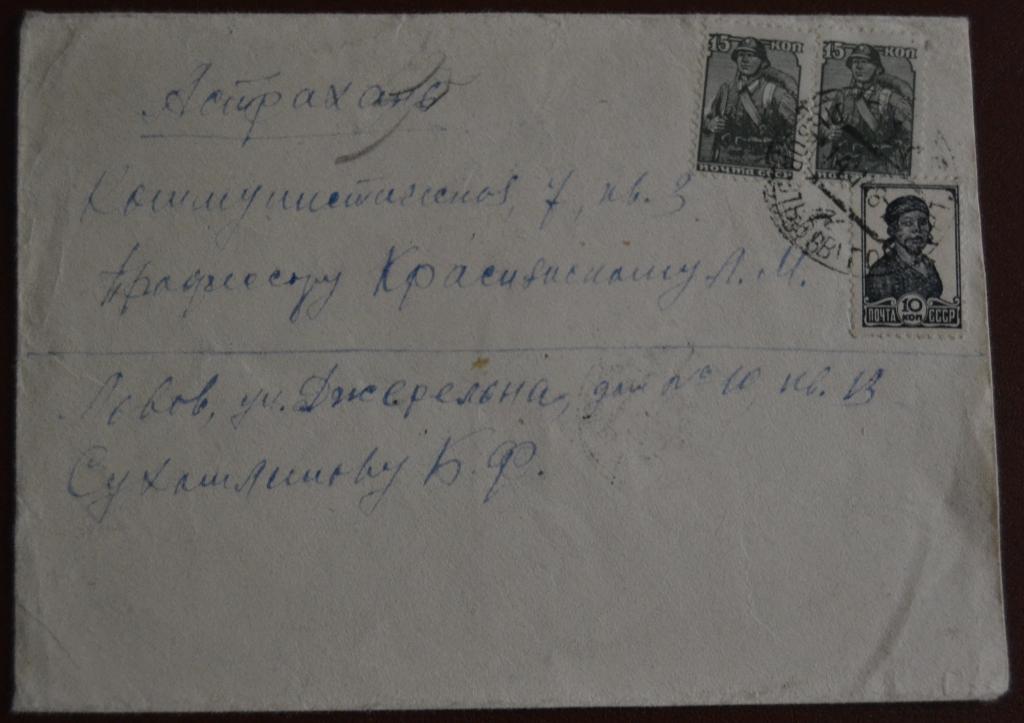 15 КОП 15 КОП
ПОЧТА СССР
Астрахань
Коммунистическая, 7, кв. 3
Профессору А. М.
10 КОП
ПОЧТА СССР
Львов, ул. Джерельна, дом № 10 кв. 13
Сухомлинову К. Ф.